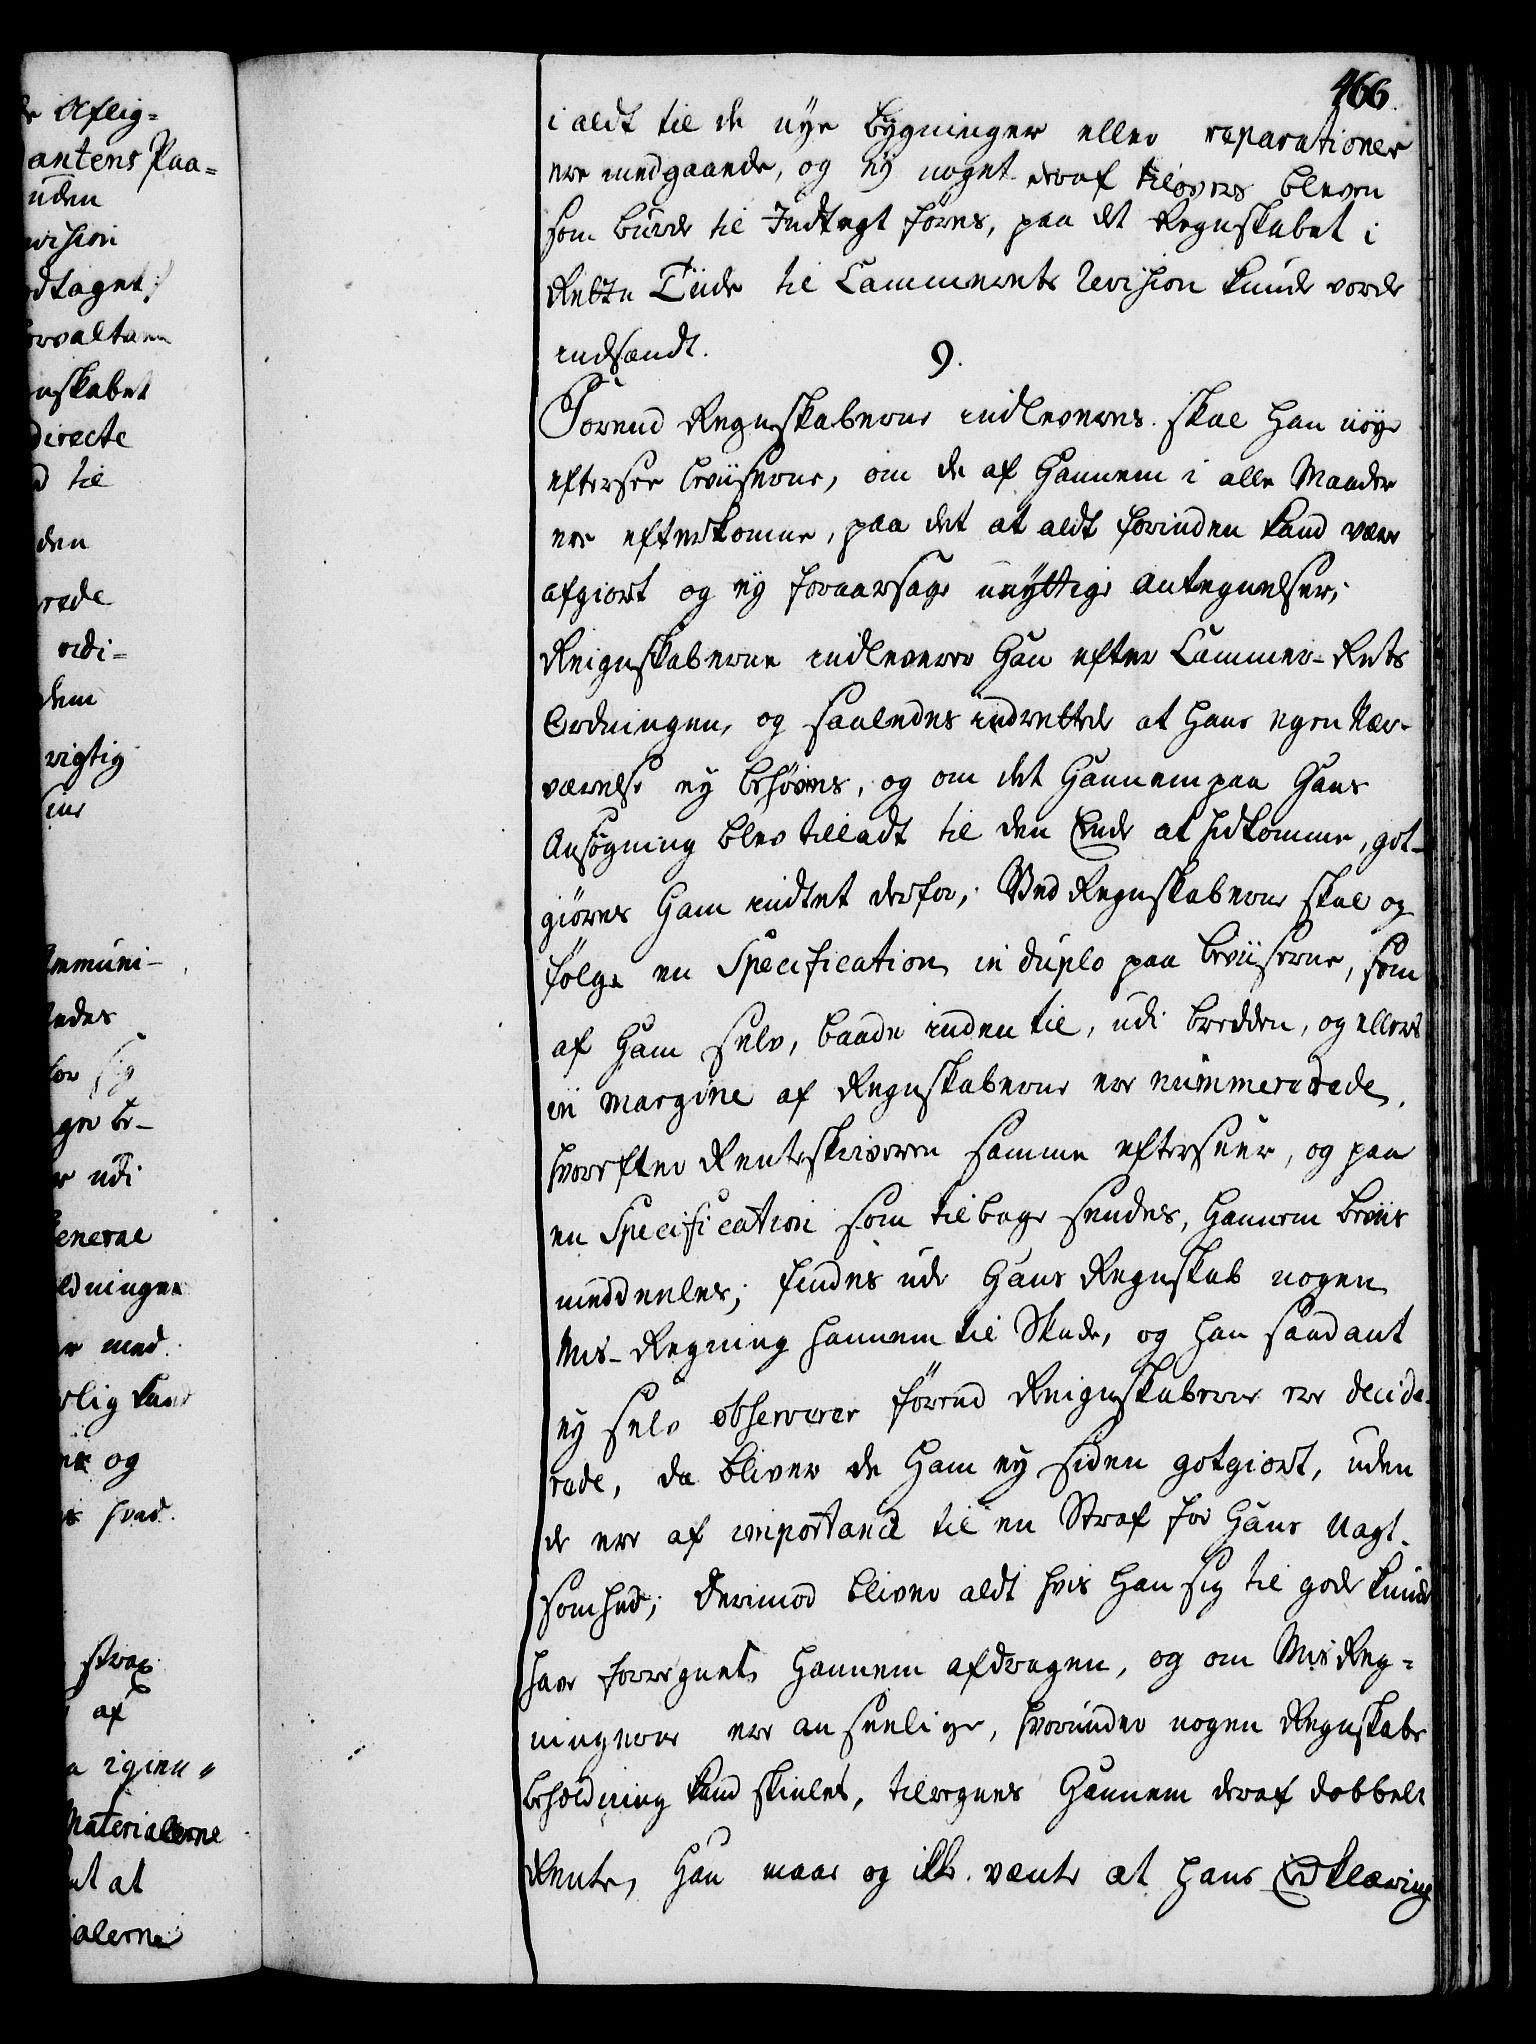 466.
i aldt til de nye bygninger eller reparationer
ere medgaaende, og ey noget deraf tilovers bleven
som burde til Indtegt føres, paa det Regnskabet i
Rette Tiide til Cammerets Revision kunde vorde
indsendt.
9.
Forend Regnskaberne indleveres skal han nøye
eftersee beviiserne, om de af Hannem i alle Maader
ere efterkomne, paa det at aldt forinden kand være
afgiort og ey foraarsage unyttige Antegnelser;
Reignskaberne indleverer Han efter Cammer-Rets
Ordningen, og saaledes indrettede at hans egen Nær-
værelse ey behøves, og om det Hannem paa Hans
Ansøgning blev tilladt til den Ende at hidkomme, got-
giøres Ham intet derfor; Ved Regnskaberne skal og
følge en Specification in duplo paa beviiserne, som
af Ham selv, baade inden til, udi bredden, og ellers
in margine af Regnskaberne ere nummererede,
hvorefter Renteskriveren samme efterseer, og paa
en Specification som tilbage sendes, Hannem beviis
meddeeles; findes udi Hans Regnskab nogen
Mis-Regning hannem til Skade, og han saadant
ey selv observerer førend Reignskaberne ere decide-
rede, da bliver de Ham ey siden gotgiort, uden
de ere af importance til en Straf for Hans Uagt-
somhed; Derimod bliver aldt hvis Han sig til gode kunde
have forregnet, Hannem afdragen, og om MisReg-
ningerne ere anseelige, hvorunder nogen Regnskabs
beholdning kand skiules, tilregnes Hannem deraf dobbelt
Rente, Han maae og ikke vente at hans Erklæring
de Aflig-
antens Paa-
uden
vision
dtaget;
orvaltere
nskabet
directe
d til
den
rede
rdi-
dem
rigtig
mmuni-
ledes
for sig
udi
General
ldninger
er med
rlig kand
og
hvad
strax
af
Materialerne
at
ialerne